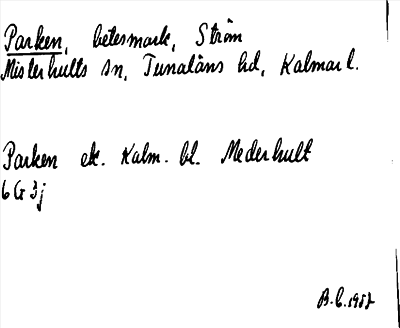 Parken, betesmark, Ström
Misterhults sn, Tunaläns hd, Kalmar l.
Parken ek. Kalm. bl. Mederhult
6 G 3j
B.L. 1957